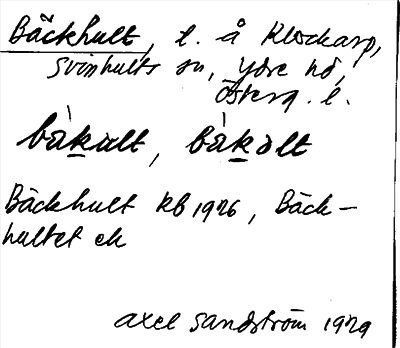 Bäckhult, l. å Klockarp,
Svinhults sn, Ydre hd,
Österg. l.
bàkult, bàkòlt
Bäckhult kb 1926, Bäck-
hultet ek
Axel Sandström 1929